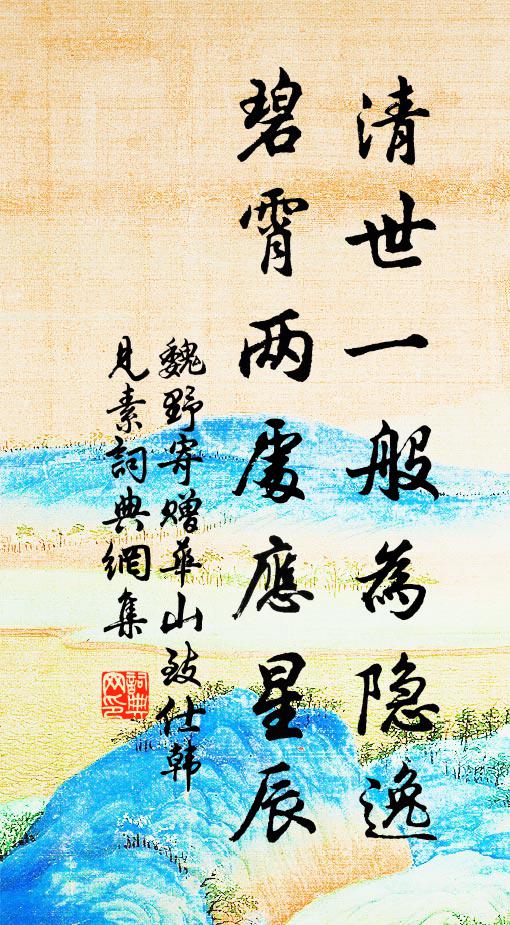 清世一般為隐逸
碧霄两處應星辰
魏野寄贈華山致仕韓
見素詞典網集
詞典
网印